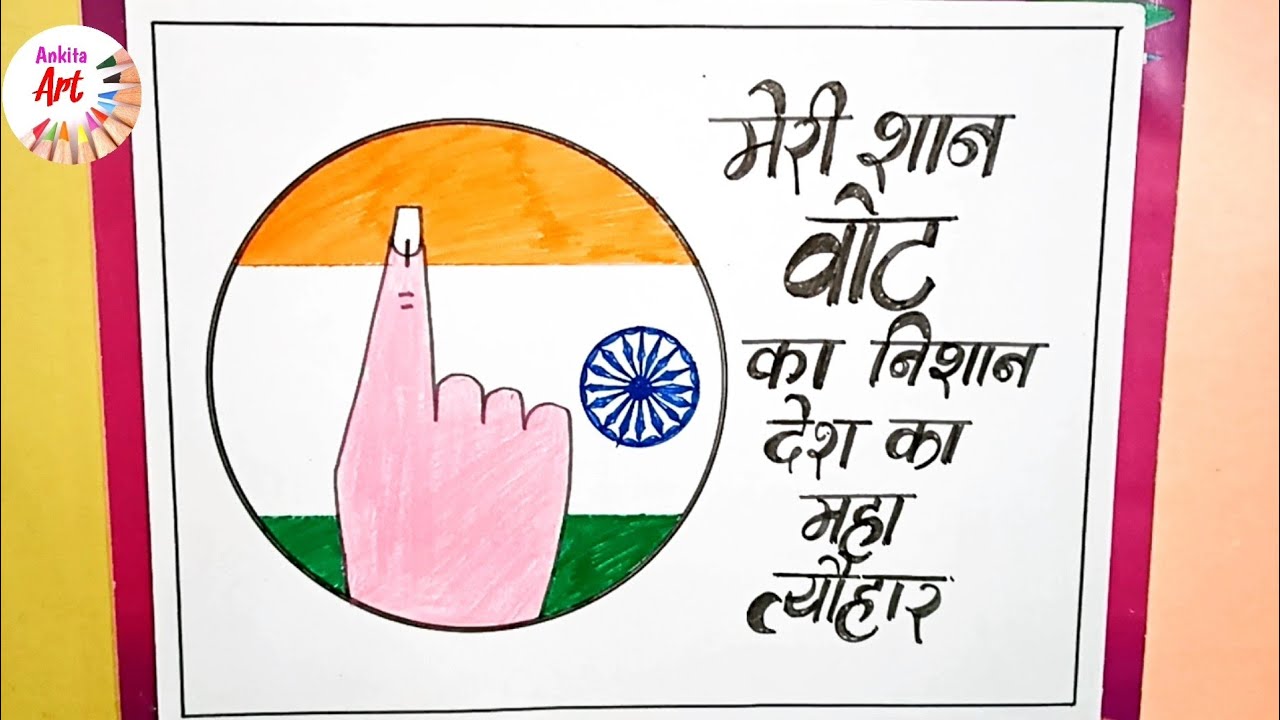 Ankita
Art
मेरी शान
वोट
का निशान
देश का
महा
त्यौहार